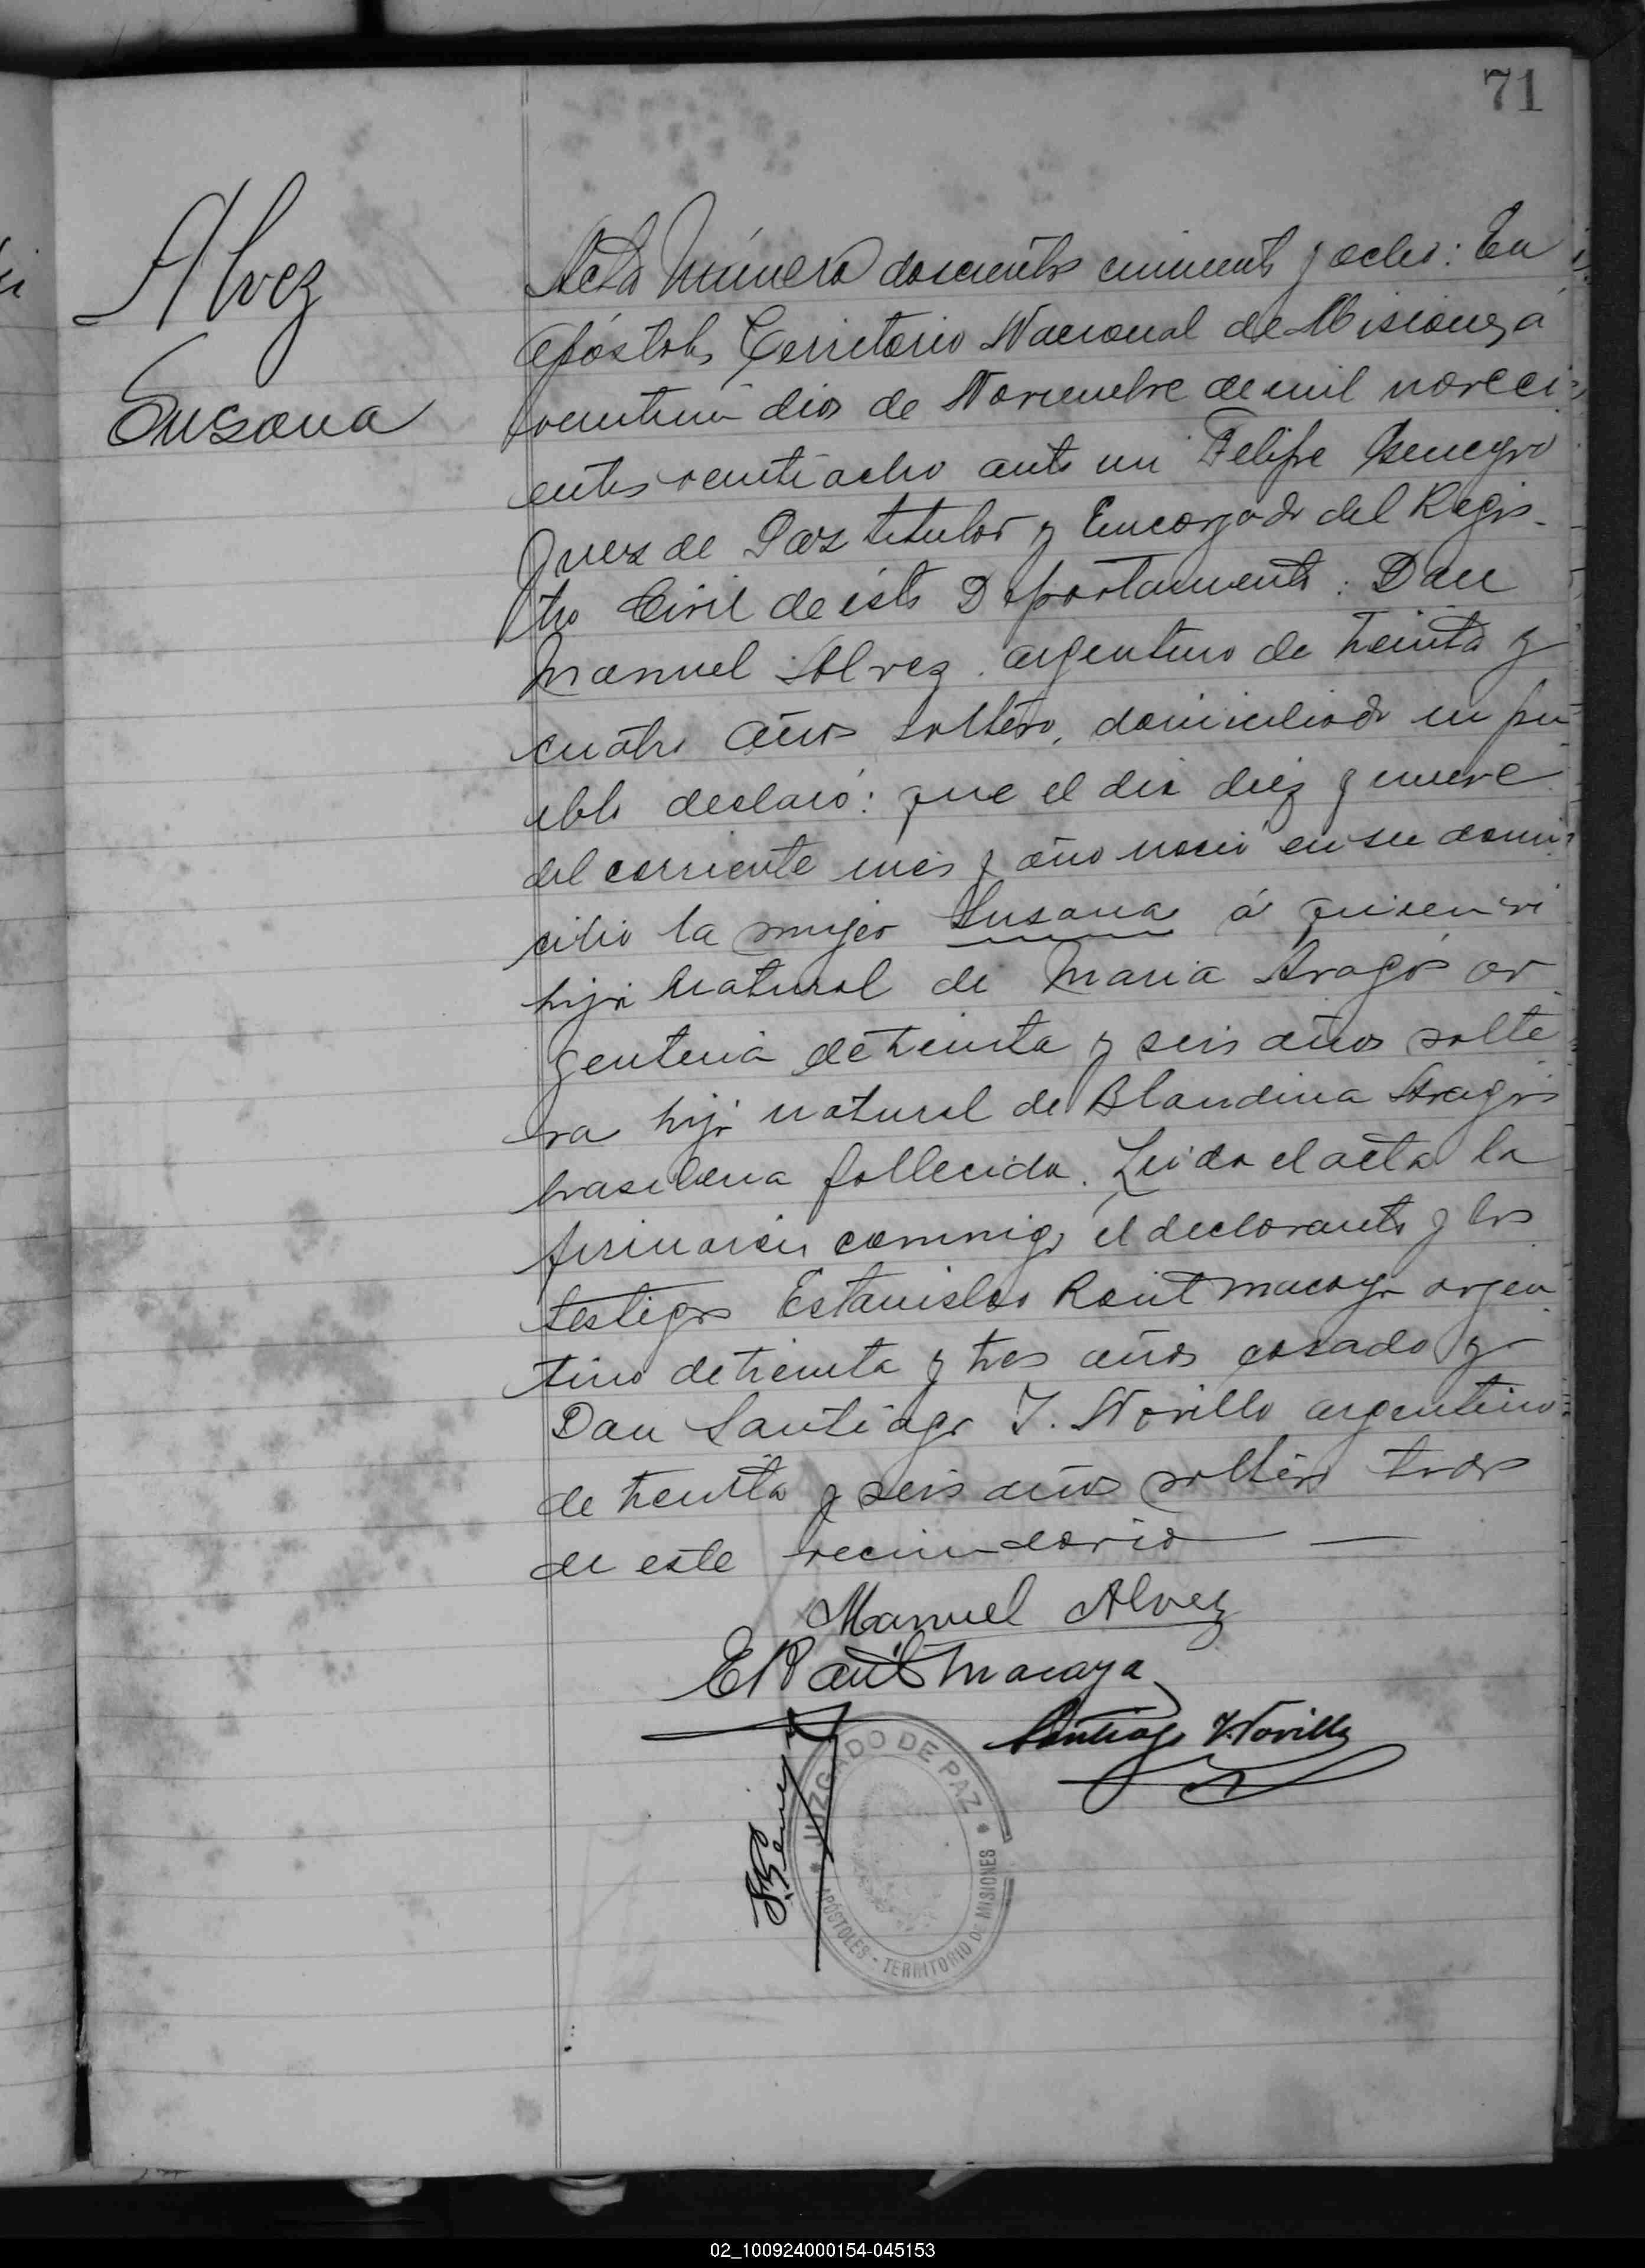 71
Alvez
Susana
Acta Número doscientos cincuenta y ocho: En
Apóstoles Territorio Nacional de Misiones, á
veintiun dias de Noviembre de mil noveci-
entos veintiocho ante mi Felipe
Juez de Paz titular y Encargado del Regis-
tro Civil de éste Departamento: Don
Manuel Alvez argentino de treinta y
cuatro años soltero, domiciliado en pu-
eblo declaró: que el dia diez y nueve
del corriente mes y año nació en su domi-
cilio la mujer Susana á quien vi
hija natural de Maria Aragós ar-
gentina de treinta y seis años solte-
ra hija natural de Blandina Aragós
brasilera fallecida. Leida el acta la
firmaron conmigo el declarante y los
testigos Estanislao Raúl Macaya argen-
tino de treinta y tres años casado y
Don Santiago T. Novillo argentino
de treinta y seis años soltero todos
de este vecindario
Manuel Alvez
E Raúl Macaya
Santiago T. Novillo
JUZGADO DE PAZ
APÓSTOLES - TERRITORIO DE MISIONES
02_100924000154-045153